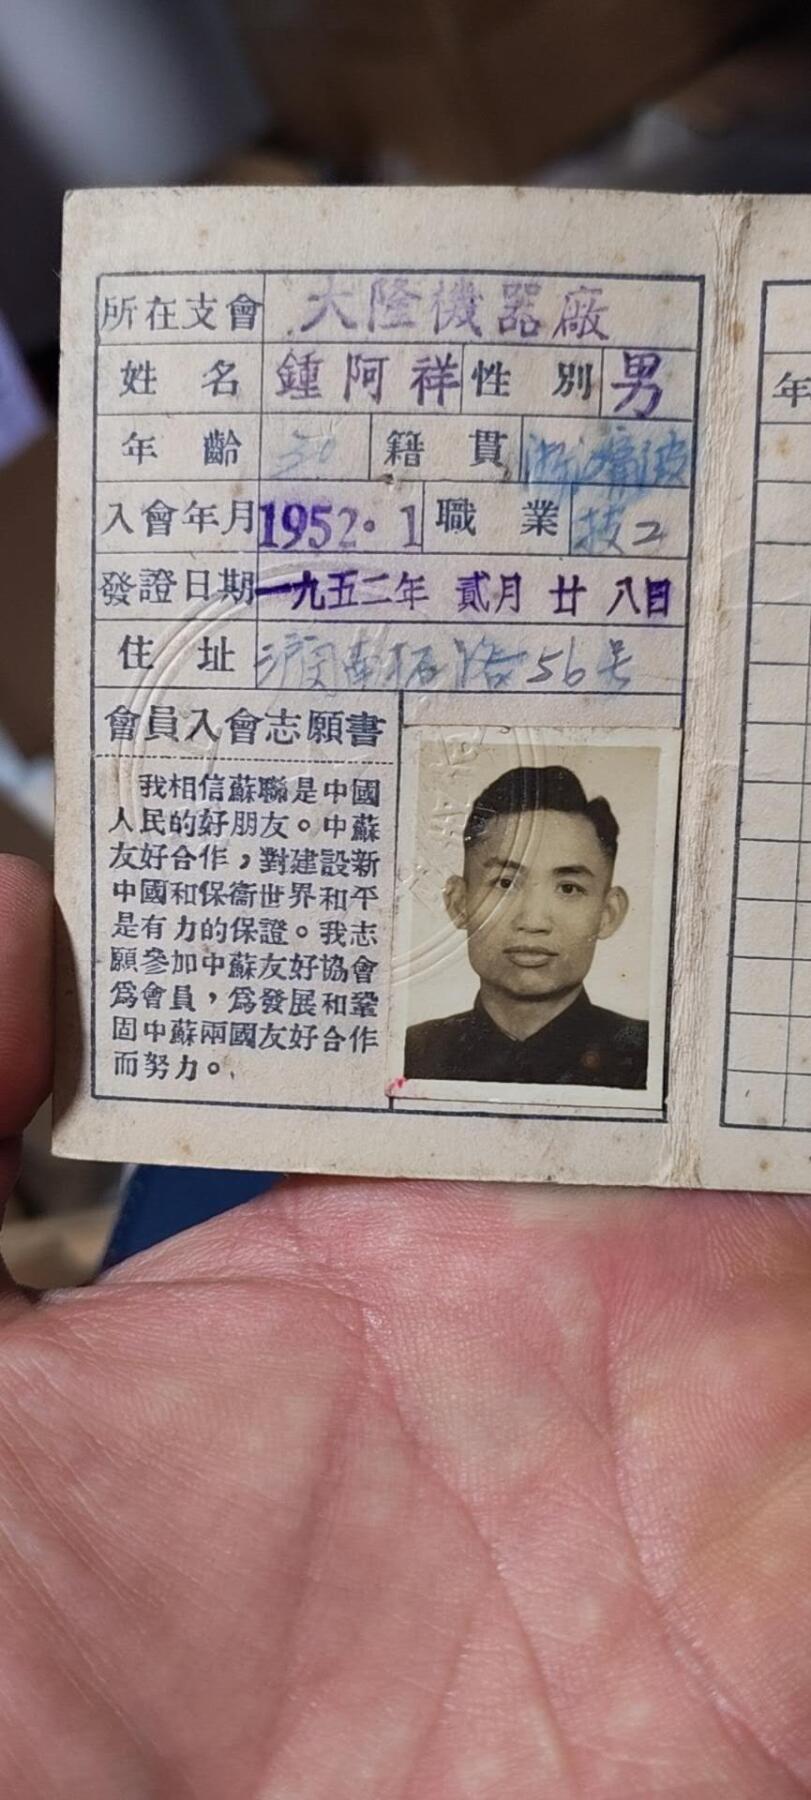 所在支會 大隆機器廠
姓名 鍾阿祥 性別 男
年齡 30 籍貫 浙江寧波
入會年月 1952.1 職業 技工
發證日期 一九五二年 貳月 廿八日
住址 滬閔南柘路56号
會員入會志願書
我相信蘇聯是中國
人民的好朋友。中蘇
友好合作，對建設新
中國和保衞世界和平
是有力的保證。我志
願參加中蘇友好協會
爲會員，爲發展和鞏
固中蘇兩國友好合作
而努力。
年